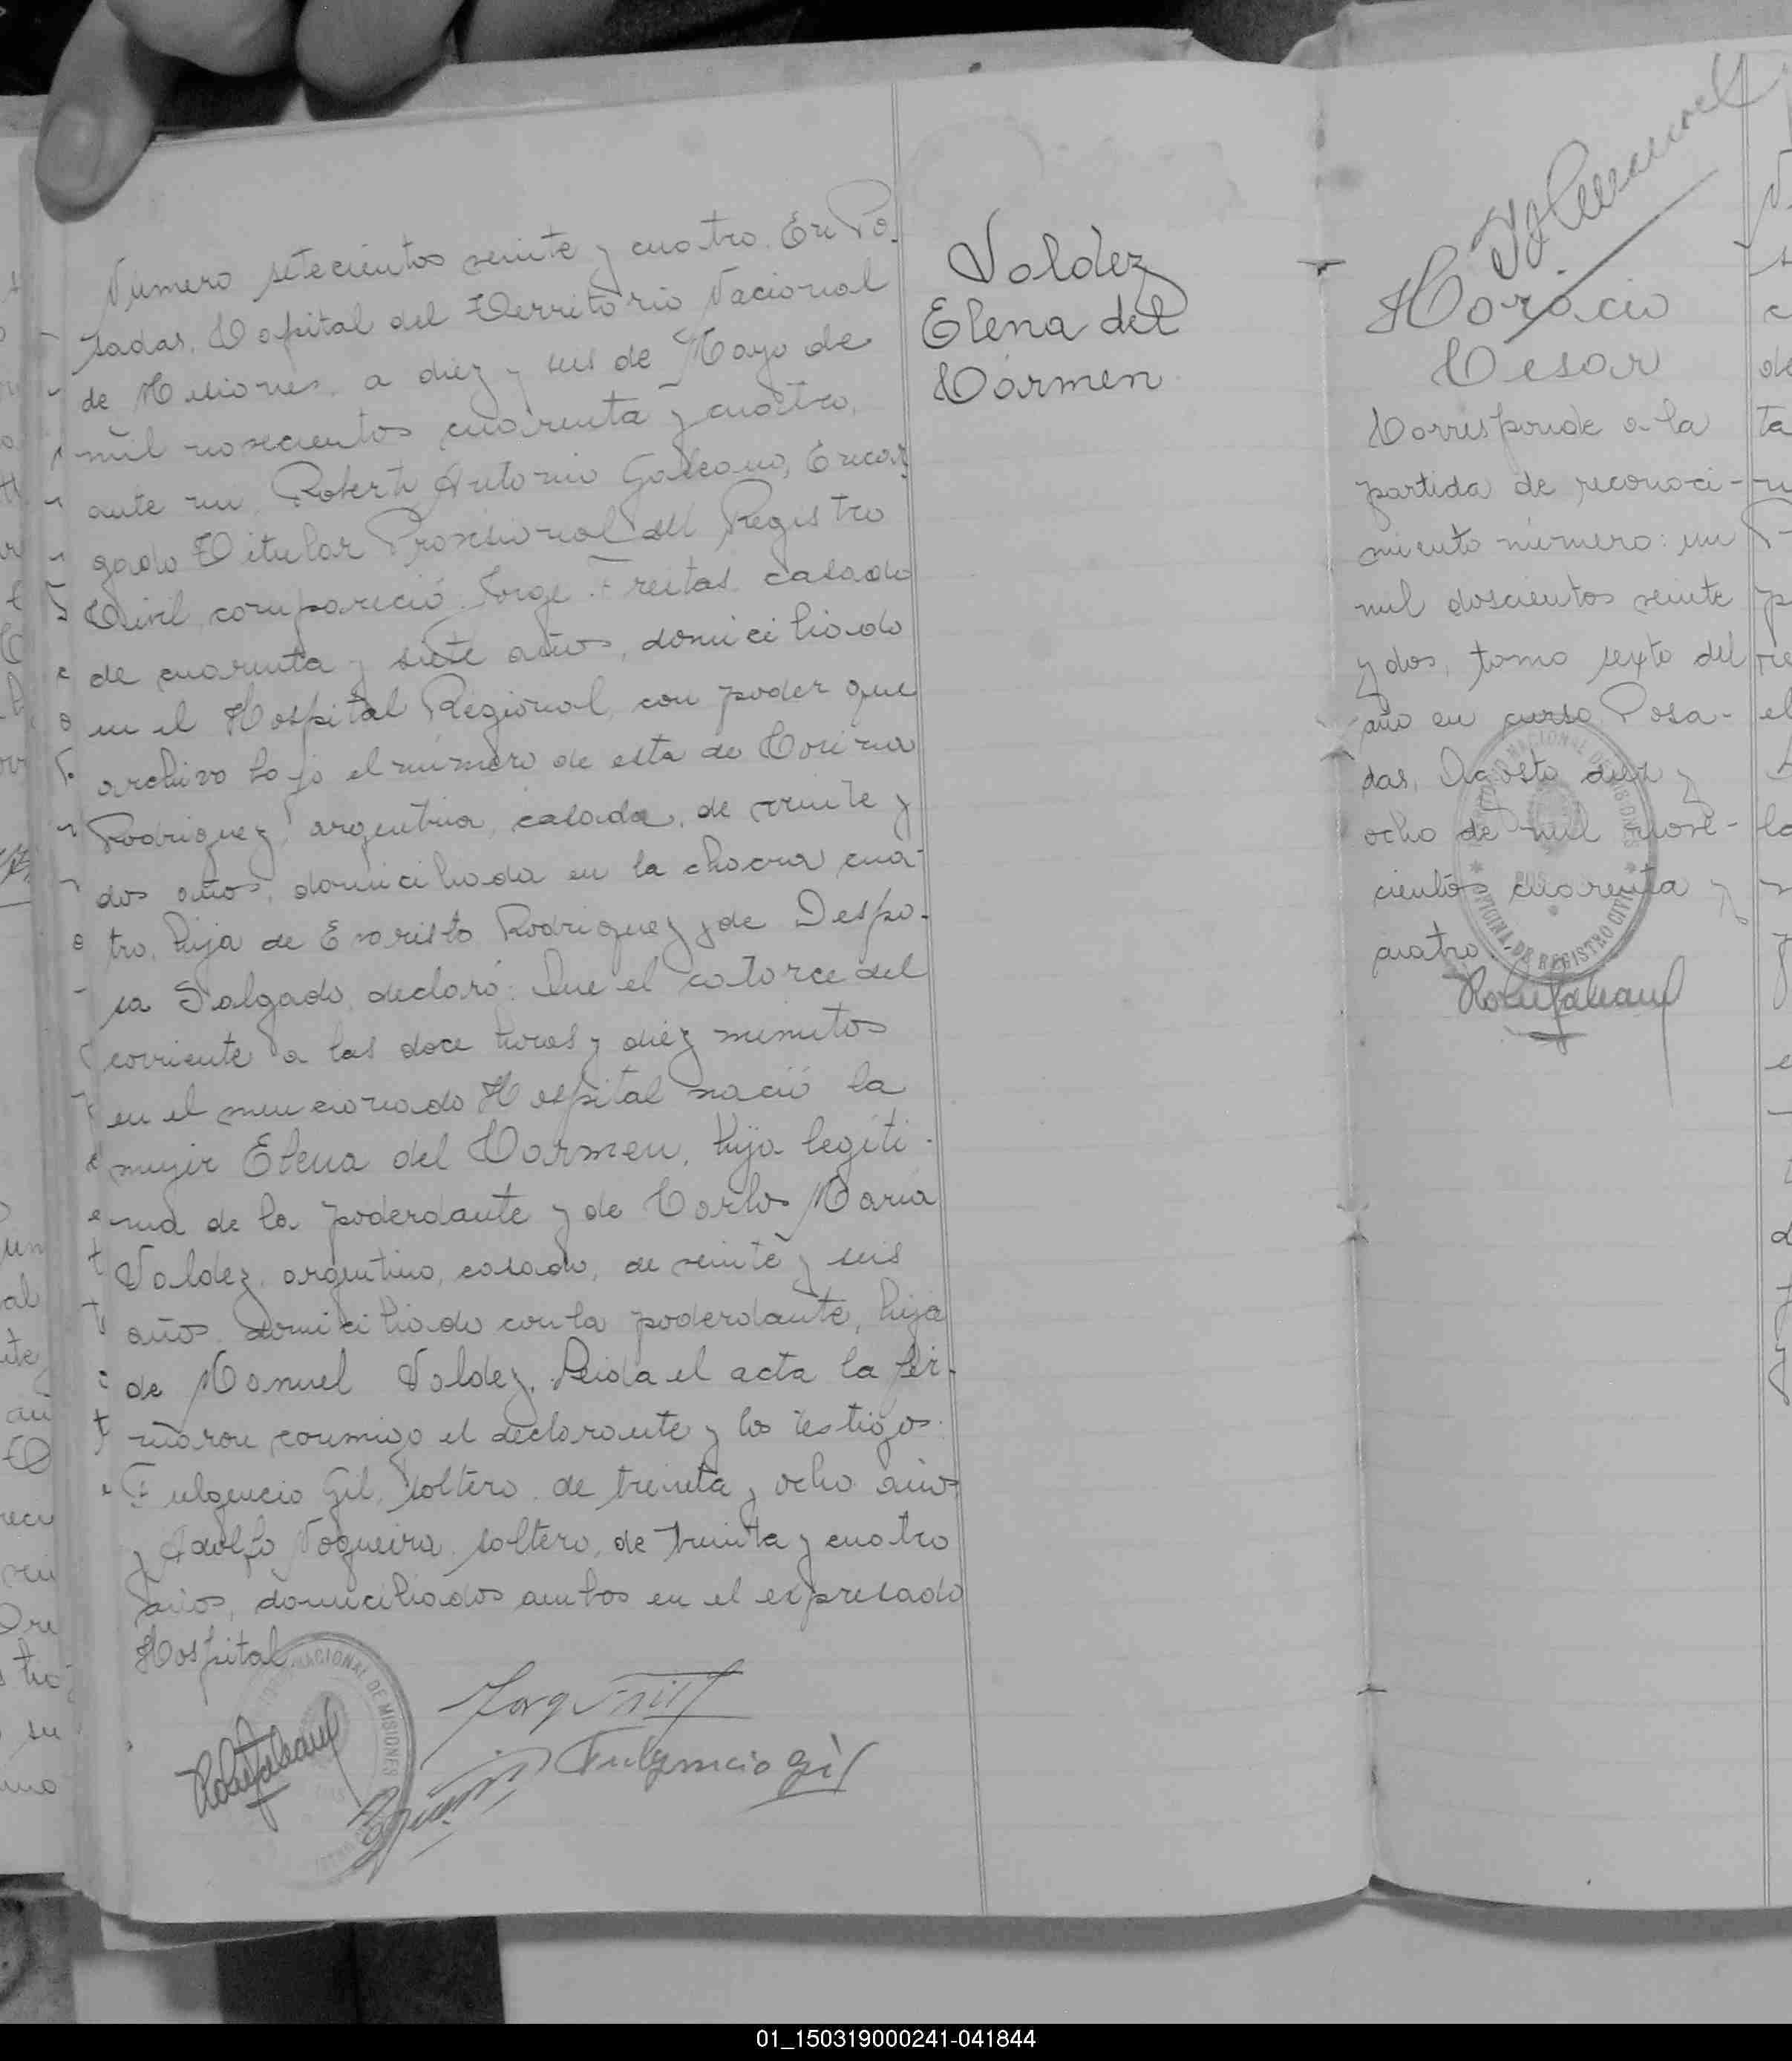 Número setecientos veinte y cuatro. En Po-
sadas, Capital del Territorio Nacional
de Misiones, a diez y seis de Mayo de
mil novecientos cuarenta y cuatro,
ante mi, Roberto Antonio Galeano, Encar-
gado Titular Provisional del Registro
Civil, compareció Jorge Freitas, casado
de cuarenta y siete años, domiciliado
en el Hospital Regional, con poder que
archivo bajo el número de esta de Corina
Rodriguez, argentina, casada, de veinte y
dos años, domiciliada en la chacra cua-
tro, hija de Evaristo Rodriguez y de Despo-
sa Salgado, declaró: Que el catorce del
corriente a las doce horas y diez minutos
en el mencionado Hospital nació la
mujer Elena del Carmen, hija legiti-
ma de la poderdante y de Carlos Maria
Valdez, argentino, casado, de veinte y seis
años, domiciliado con la poderdante, hijo
de Manuel Valdez. Leida el acta la fir-
maron conmigo el declarante y los testigos:
Fulgencio Gil, soltero, de treinta y ocho años
y Adolfo Nogueira, soltero, de treinta y cuatro
años, domiciliados ambos en el expresado
Hospital
NACIONAL DE MISIONES
Fulgencio Gil
Valdez
Elena del
Cármen
Horacio
Cesar
Corresponde a la
partida de reconoci-
miento número: un
mil doscientos veinte
y dos, tomo sexto del
año en curso. Posa-
das, Agosto diez y
ocho de mil nove-
cientos cuarenta y
cuatro.
TERRITORIO NACIONAL DE MISIONES
OFICINA DE REGISTRO CIVIL
01_150319000241-041844